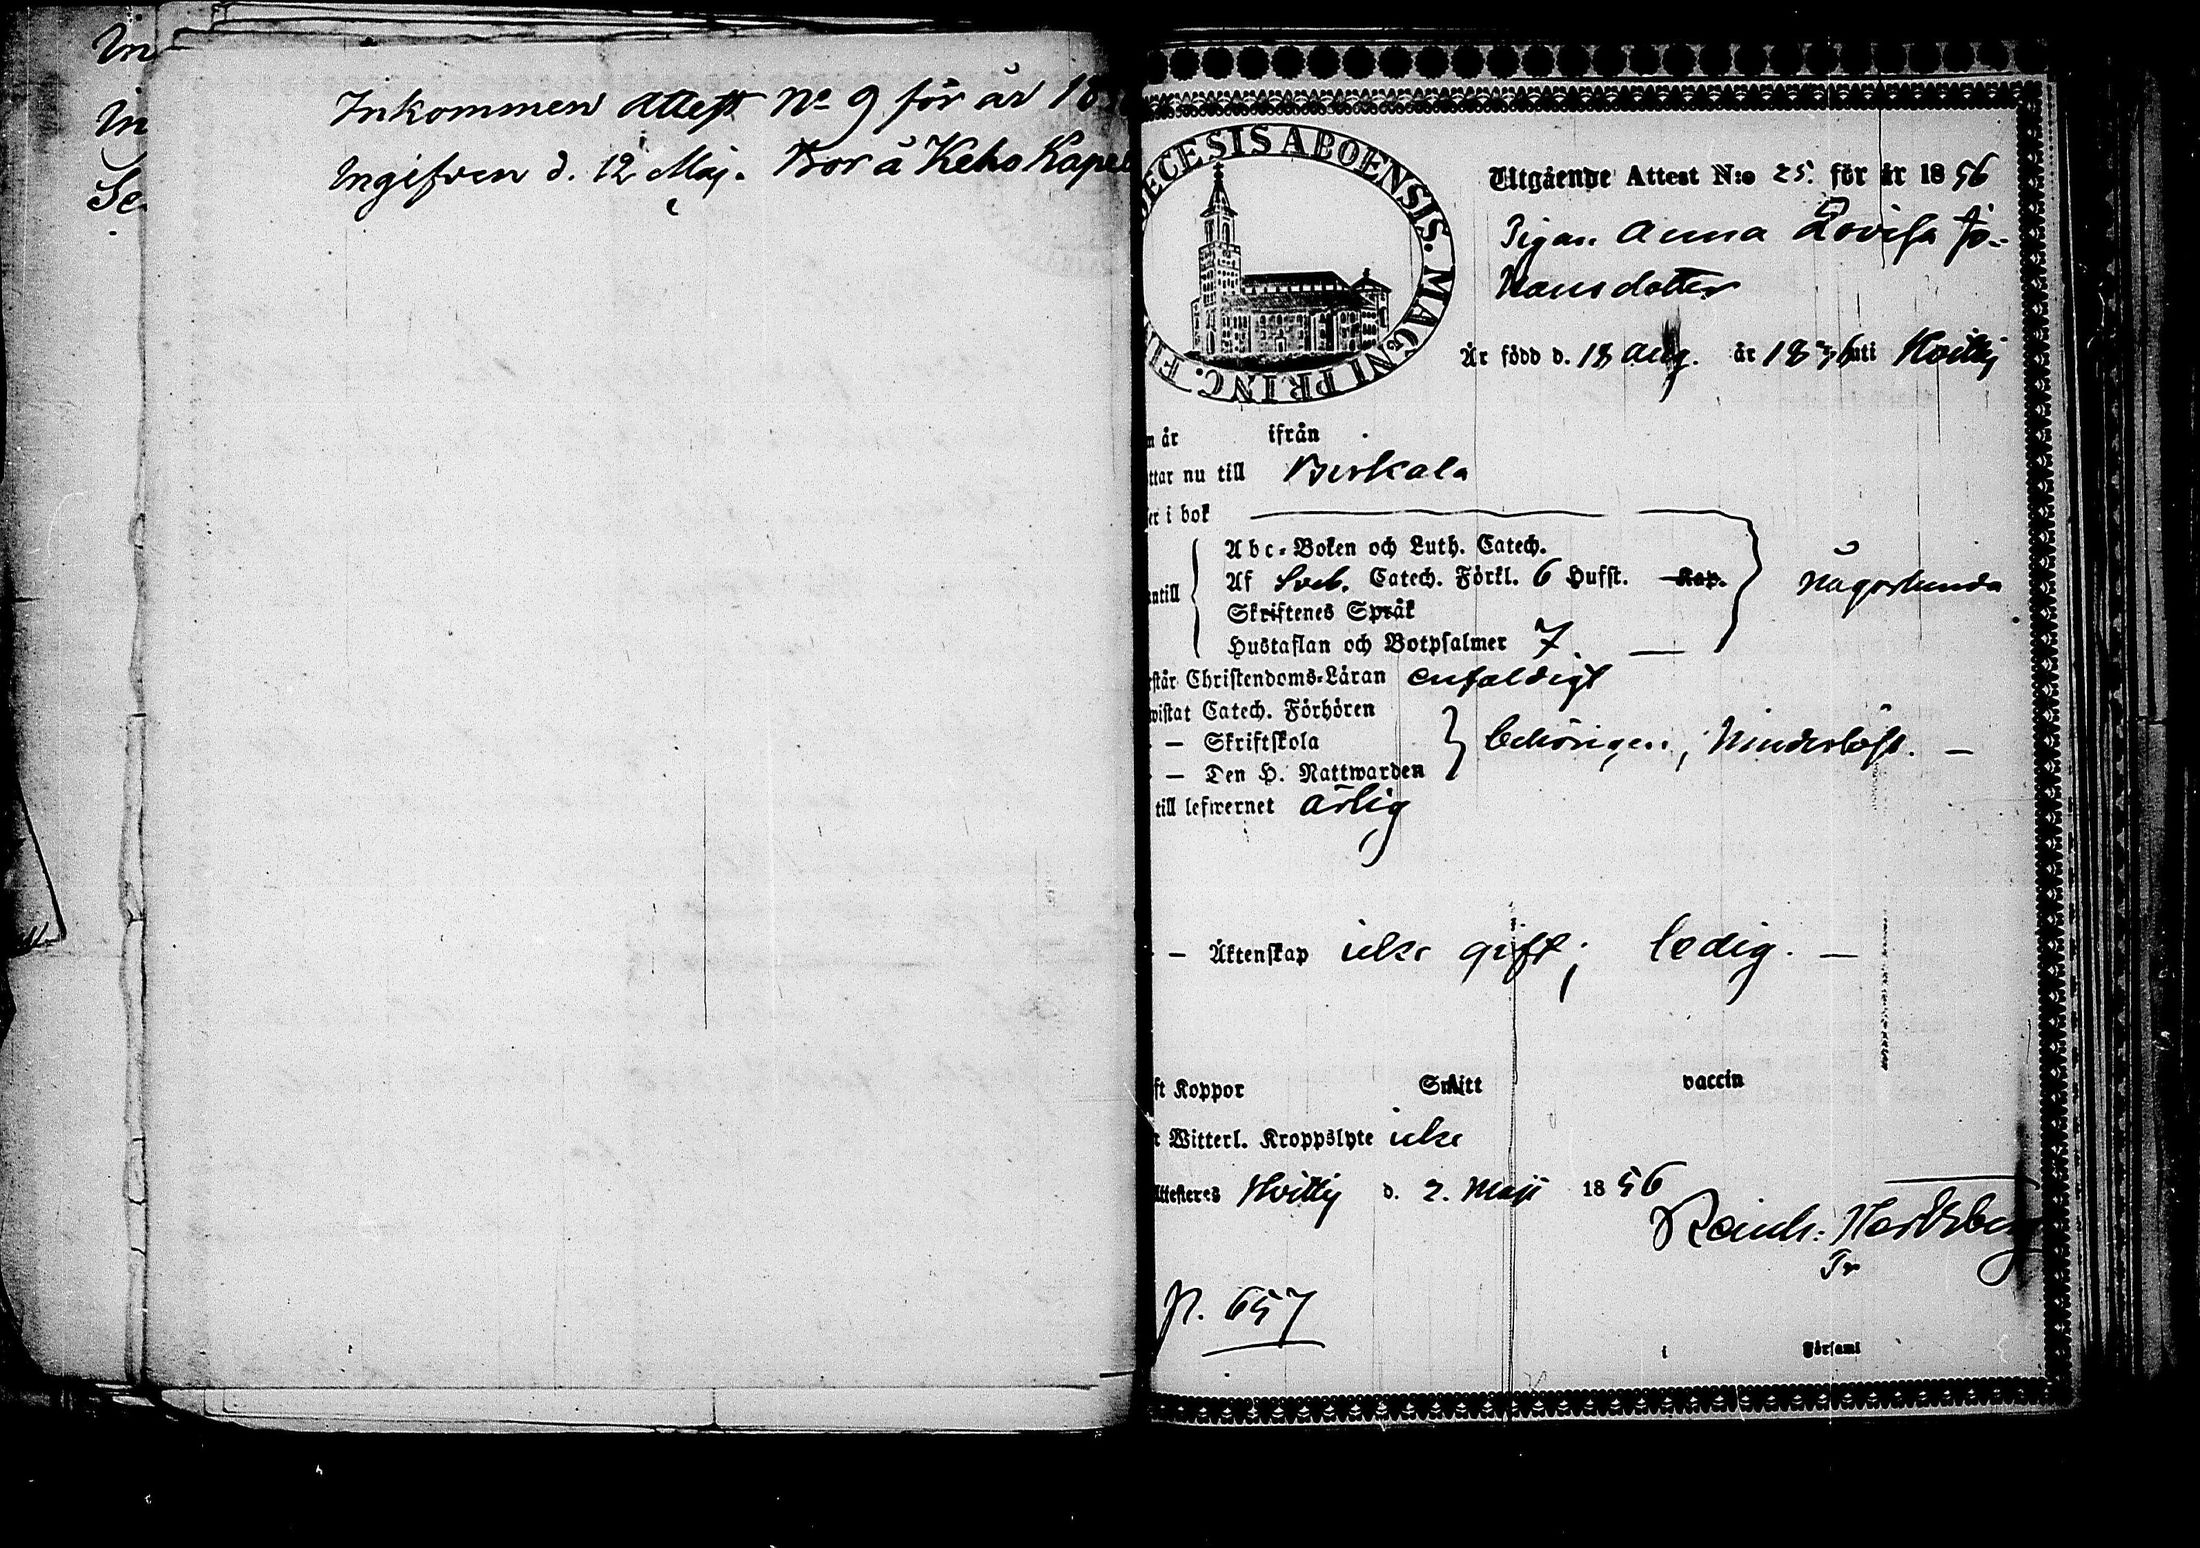 In
In
Se
Inkommen Attest No 9 för år 18
Ingifven d. 12 Maj. Bor å Keho Kapel
DIECESIS ABOENSIS. MAGNI PRINC. FI
Utgående Attest N:o 25. för år 1856
Pigan Anna Lovisa Jo-
hansdotter
Är född d. 18 Aug. år 1836 uti Hvittis
n år ifrån
ttar nu till Birkala
er i bok
Abc-Boken och Luth. Catech.
antill Af Sveb. Catech. Förkl. 6 Hufst. Kap. någorlunda
Skriftenes Språk
Hustaflan och Botpsalmer 7.
rstår Christendoms-Läran enfaldigt
wistat Catech. Förhören
— Skriftskola behörigen, hinderlöst. —
— Den H. Nattwarden
till lefwernet ärlig
— Äktenskap icke gift; ledig. —
ft Koppor Smitt vaccin
r Witterl. Kroppslyte icke
Attesteres Hvittis d. 2. Maji 1856
Reinh. Hertzberg
Pr
p. 657
i Församl